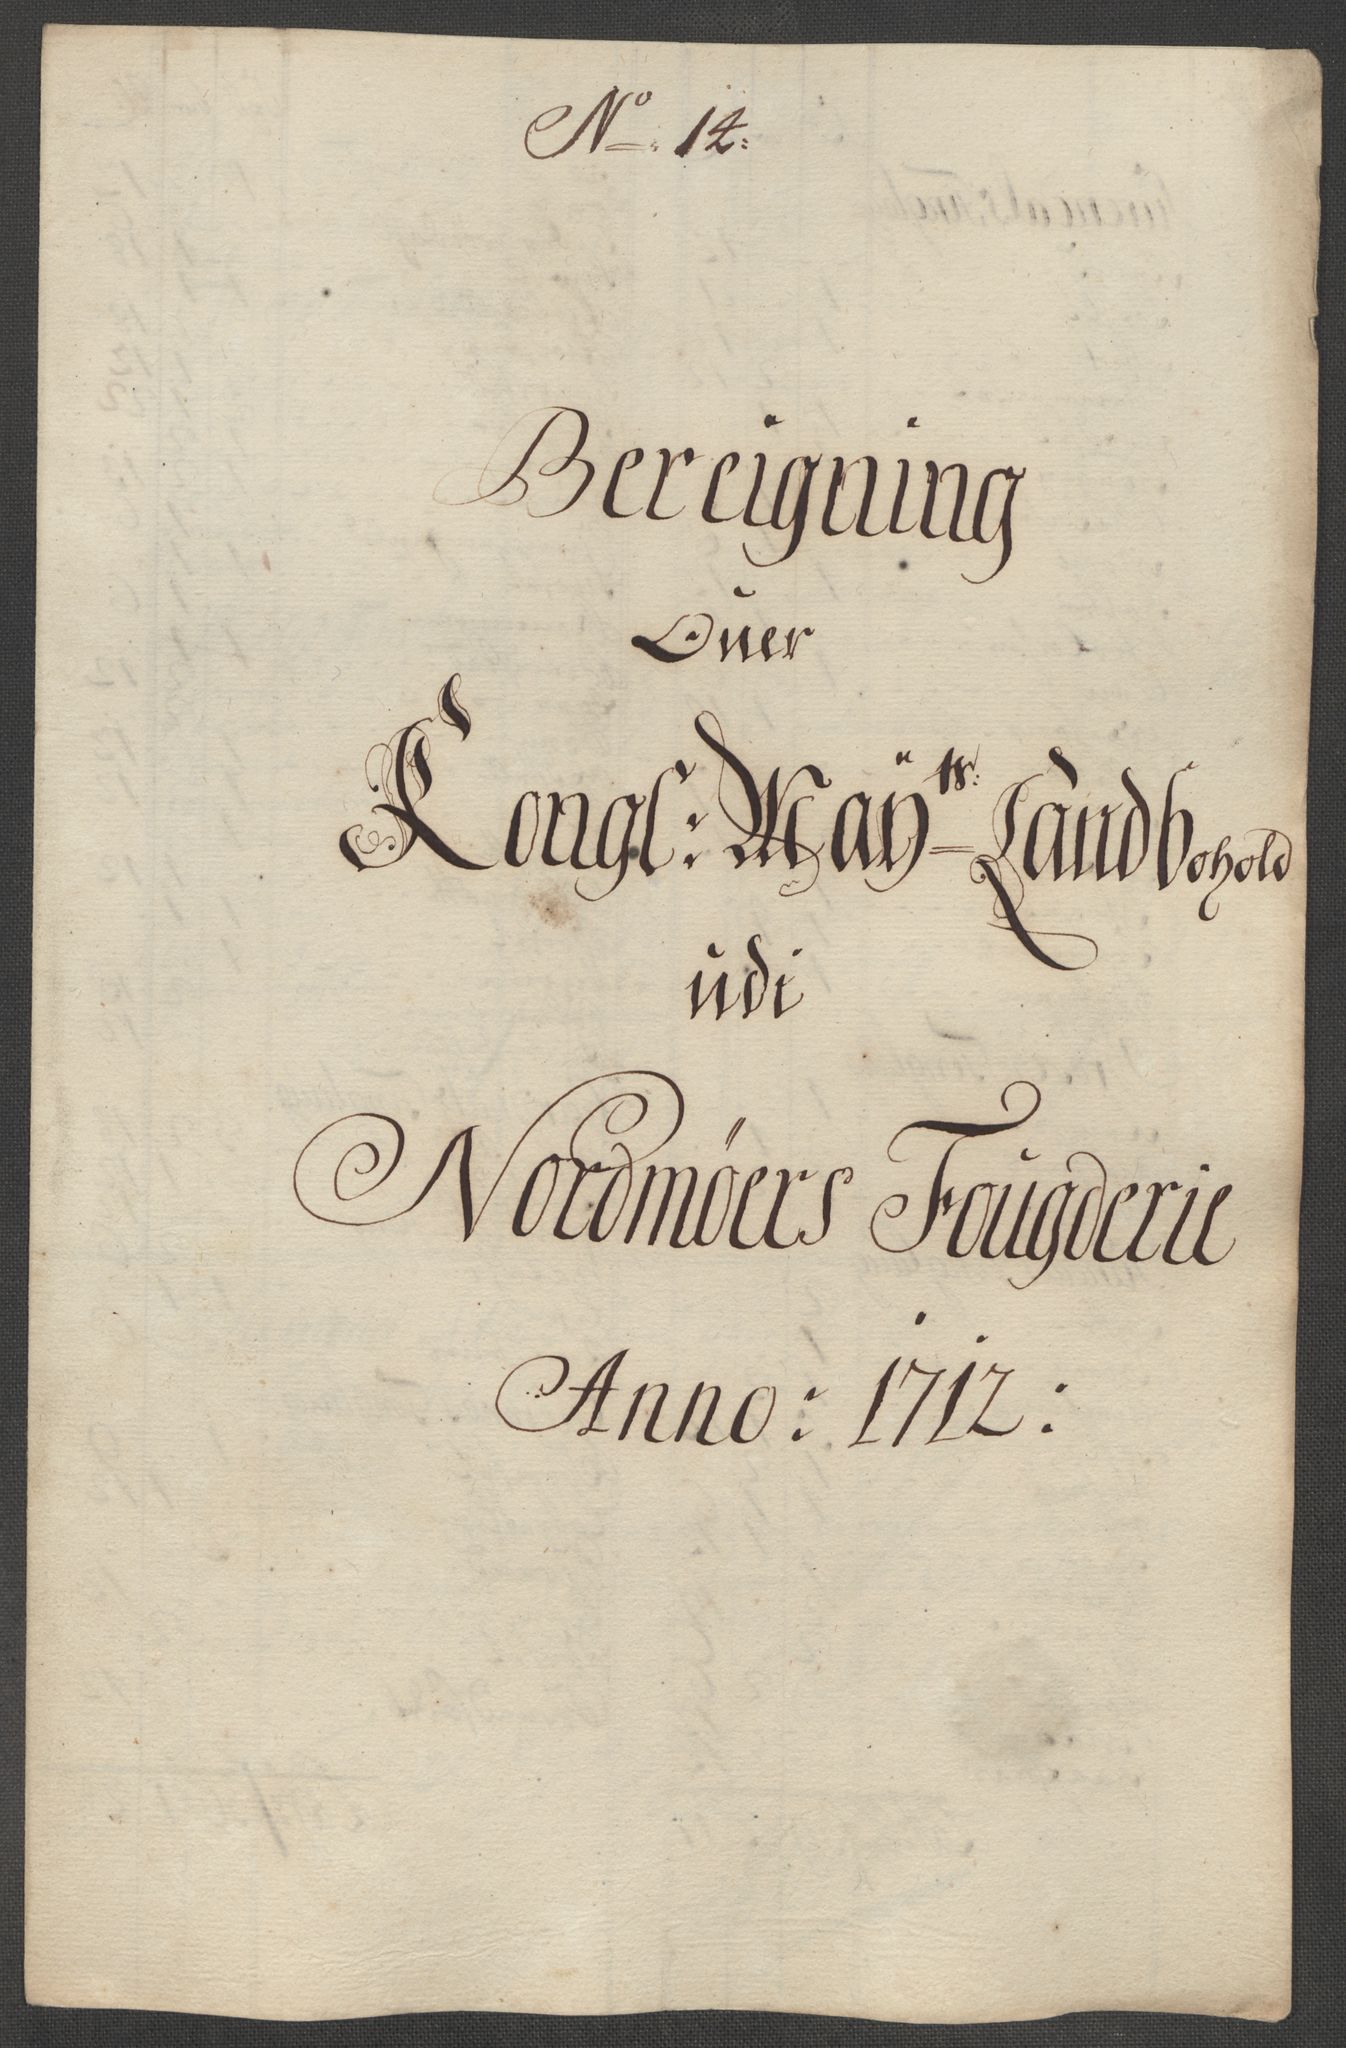 No. 14.
Bereigning
Ouer
Kongl: Maÿts: Landbohold
udi
Nordmøers Fougderie
Anno: 1712: